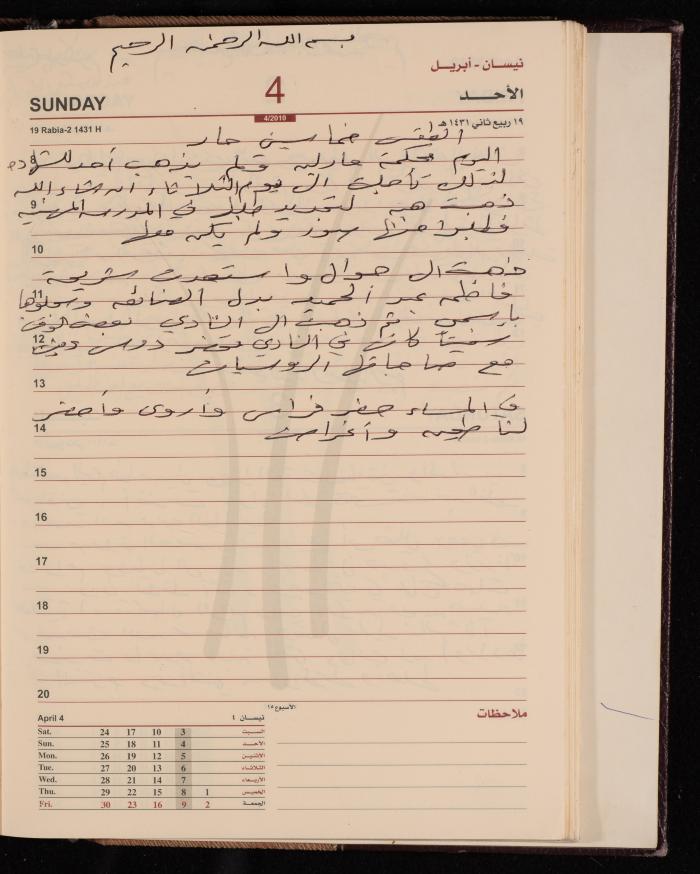 بسم الله الرحمن الرحيم
نيسان - أبريل
SUNDAY
4
الأحد
4/2010
19 Rabia-2 1431 H
١٩ ربيع ثاني ١٤٣١ هـ
الطقس خماسين حار
اليوم محكمة مارلين ولم يذهب أحد للشهادة
8
لذلك تأجلت الى يوم الثلاثاء ان شاء الله
ذهبت هي لتجديد طلب في المدرسة المهنية
9
فطلبوا منها صور ولم يكن معها
10
ذهبت الى جوال واستعدت شريحة
11
فاطمه عبد الحميد بدل الضائعه وسجلوها
بإسمي ثم ذهبت الى النادي
12
كانت في النادي تحضر دروس
مع صاحباتها الروسيات
13
في المساء حضر فراس وأروى وأحضر
14
لنا وأغراض
15
16
17
18
19
20
الأسبوع ١٥
ملاحظات
April 4
نيسان ٤
Sat. 24 17 10 3 السبت
Sun. 25 18 11 4 الأحد
Mon. 26 19 12 5 الاثنين
Tue. 27 20 13 6 الثلاثاء
Wed. 28 21 14 7 الأربعاء
Thu. 29 22 15 8 1 الخميس
Fri. 30 23 16 9 2 الجمعة